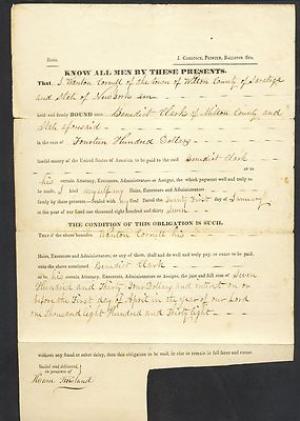 BOND. J. COMSTOCK, PRINTER, BALLSTON SPA.
KNOW ALL MEN BY THESE PRESENTS.
That I Wanton Cornell of the town of Wilton County of Saratoga
and State of New York am
held and firmly BOUND unto Benedict Clark of Milton County and
State aforesaid
in the sum of Fourteen Hundred Dollars
lawful money of the United States of America, to be paid to the said Benedict Clark
his certain Attorney, Executors, Administrators or Assigns, the which payment well and truly to
be made, I bind myself my Heirs, Executors and Administrators
firmly by these presents. Sealed with my Seal Dated the Twenty First day of January
in the year of our Lord one thousand eight hundred and thirty Seven
THE CONDITION OF THIS OBLIGATION IS SUCH,
That if the above bounden Wanton Cornell his
Heirs, Executors and Administrators, or any of them, shall and do well and truly pay, or cause to be paid,
unto the above mentioned Benedict Clark
or his certain Attorney, Executors, Administrators or Assigns, the just and full sum of Seven
Hundred and Thirty Four Dollars and interest on or
before the First day of April in the year of our Lord
one thousand eight Hundred and Thirty eight
without any fraud or other delay, then this obligation to be void, or else to remain in full force and virtue.
Sealed and delivered,
in presence of
Rowland